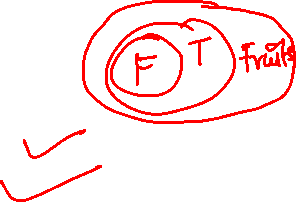 F T Fruits